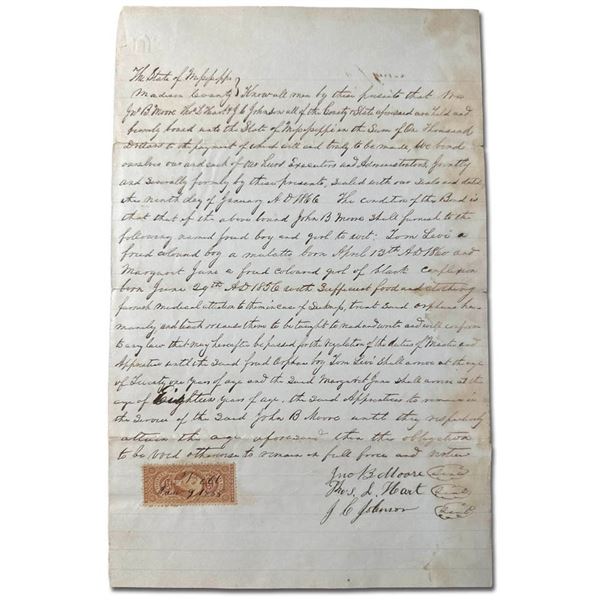 The State of Mississippi
Madison County Know all men by these presents that We
Jno B Moore Thos L Hart & J C Johnson all of the County & State aforesaid are held and
firmly bound unto the State of Mississippi in the Sum of One thousand
Dollars to the payment of which well and truly to be made, We bind
ourselves our and each of our heirs Executors and Administrators, Jointly
and Severally firmly by these presents, Sealed with our Seals and dated
this Ninth day of January A D 1866 The condition of this Bond is
that if the above bound John B Moore Shall furnish to the
following named freed boy and girl to wit: Tom Levi a
freed coloured boy a mulatto born April 13th A D 1860 and
Margaret Jane a freed coloured girl of black complexion
born June 29th A D 1856 with Sufficient food and clothing
furnish medical attention to them in case of Sickness, treat Said orphans humanely
and teach or cause them to be taught to read and write and will conform
to any law that may hereafter be passed for the regulation of the duties of Master and
Apprentice until the Said freed Orphan boy Tom Levi Shall arrive at the age
of Twenty one years of age and the Said Margaret Jane Shall arrive at the
age of Eighteen years of age, the Said Apprentices to remain in
the Service of the Said John B Moore until they respectively
attain the age aforesaid then this obligation
to be void otherwise to remain in full force and
Jno B Moore Seal
Thos. L. Hart Seal
J C Johnson Seal